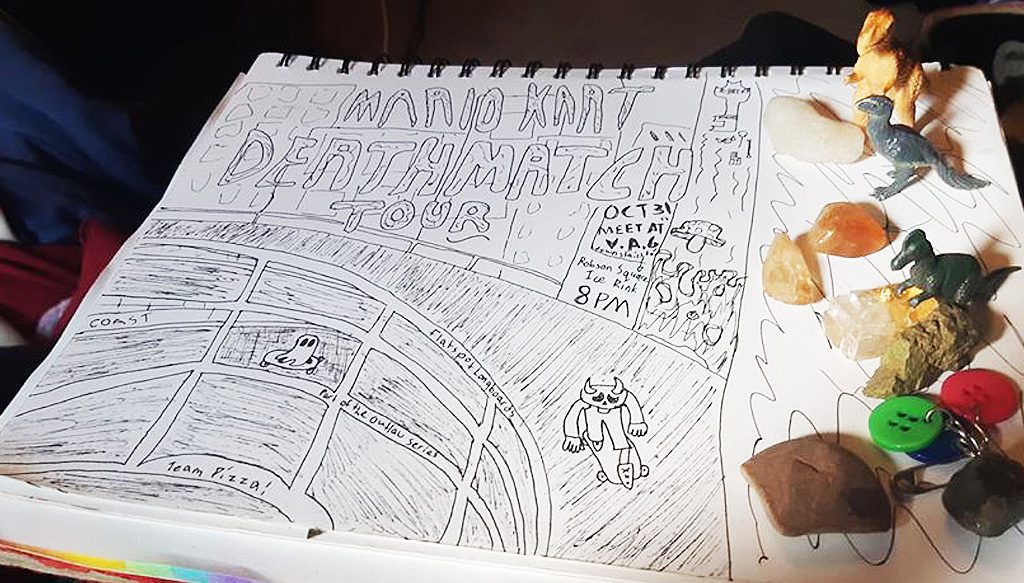 MARIO KART
DEATHMATCH
TOUR
OCT 31
MEET AT
V.A.G
Downstairs
Robson Square
Ice Rink
8 PM
COAST
Flatspot Longboards
Part of the Outlaw Series
Team Pizza!